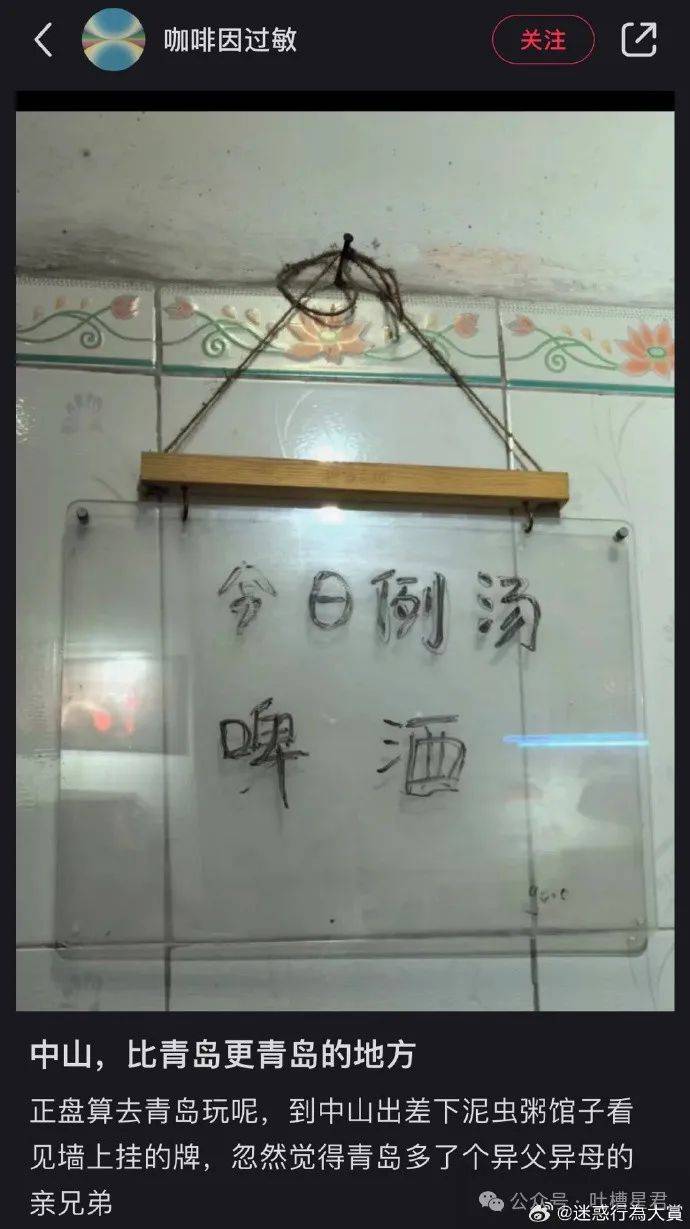 咖啡因过敏
关注
今日例汤
啤酒
中山，比青岛更青岛的地方
正盘算去青岛玩呢，到中山出差下泥虫粥馆子看
见墙上挂的牌，忽然觉得青岛多了个异父异母的
亲兄弟
公众号·吐槽星君
@迷惑行為大賞